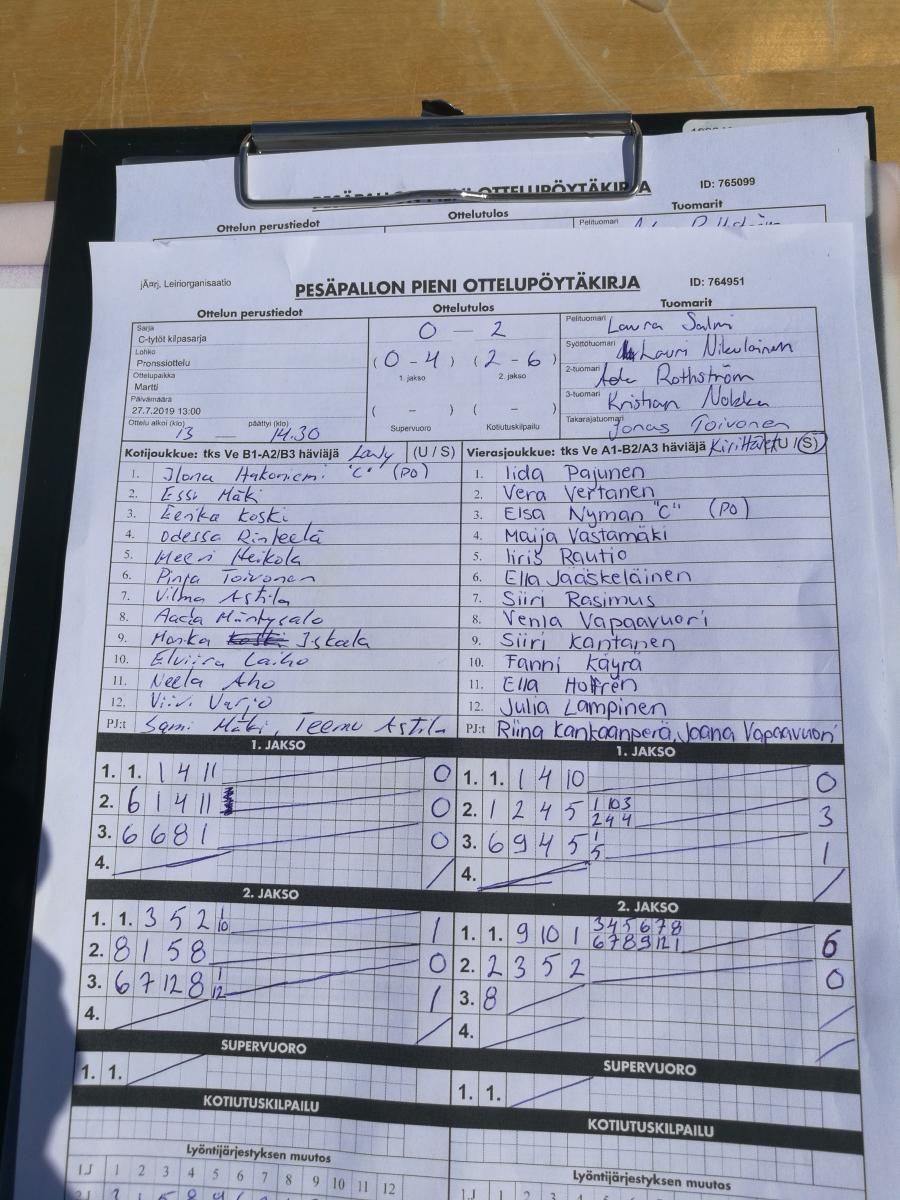 PESÄPALLON PIENI OTTELUPÖYTÄKIRJA
ID: 765099
Ottelun perustiedot
Ottelutulos
Tuomarit
Pelituomari
jÃ¤rj. Leiriorganisaatio
PESÄPALLON PIENI OTTELUPÖYTÄKIRJA
ID: 764951
Ottelun perustiedot
Ottelutulos
Tuomarit
Sarja
C-tytöt kilpasarja
Lohko
Pronssiottelu
Ottelupaikka
Martti
Päivämäärä
27.7.2019 13:00
Ottelu alkoi (klo) 13 — päättyi (klo) 14.30
0 — 2
(0-4) (2-6)
1. jakso 2. jakso
( - ) ( - )
Supervuoro Kotiutuskilpailu
Pelituomari Laura Salmi
Syöttötuomari Lauri Nikulainen
2-tuomari Rothström
3-tuomari Kristian Nokka
Takarajatuomari Jonas Toivonen
Kotijoukkue: tks Ve B1-A2/B3 häviäjä (U / S)
1. Ilona Hakoniemi "C" (PO)
2. Essi Mäki
3. Eerika Koski
4. Odessa Rinteelä
5. Meeri Heikola
6. Pinja Toivonen
7. Vilma Astila
8. Aada Mäntysalo
9. Monika Iskala
10. Elviira Laiho
11. Neela Aho
12. Viivi Varjo
PJ:t Sami Mäki, Teemu Astila
Vierasjoukkue: tks Ve A1-B2/A3 häviäjä (U / S)
1. Iida Pajunen
2. Vera Vertanen
3. Elsa Nyman "C" (PO)
4. Maija Västämäki
5. Iiris Rautio
6. Ella Jääskeläinen
7. Siiri Rasimus
8. Venla Vapaavuori
9. Siiri Kantanen
10. Fanni Käyrä
11. Ella Hoffrén
12. Julia Lampinen
PJ:t Riina Kankaanperä, Joana Vapaavuori
1. JAKSO
1. 1. 1 4 11 0
2. 6 1 4 11 0
3. 6 6 8 1 0
4.
1. JAKSO
1. 1. 1 4 10 0
2. 1 2 4 5 1 10 3 3
2 4 4
3. 6 9 4 5 1 1
5
4.
2. JAKSO
1. 1. 3 5 2 1 1
10
2. 8 1 5 8 0
3. 6 7 12 8 1 1
12
4.
2. JAKSO
1. 1. 9 10 1 3 4 5 6 7 8 6
6 7 8 9 12 1
2. 2 3 5 2 0
3. 8
4.
SUPERVUORO
1. 1.
SUPERVUORO
1. 1.
KOTIUTUSKILPAILU
KOTIUTUSKILPAILU
Lyöntijärjestyksen muutos
1.J 1 2 3 4 5 6 7 8 9 10 11 12
Lyöntijärjestyksen muutos
1.J 1 2 3 4 5 6 7 8 9 10 11 12